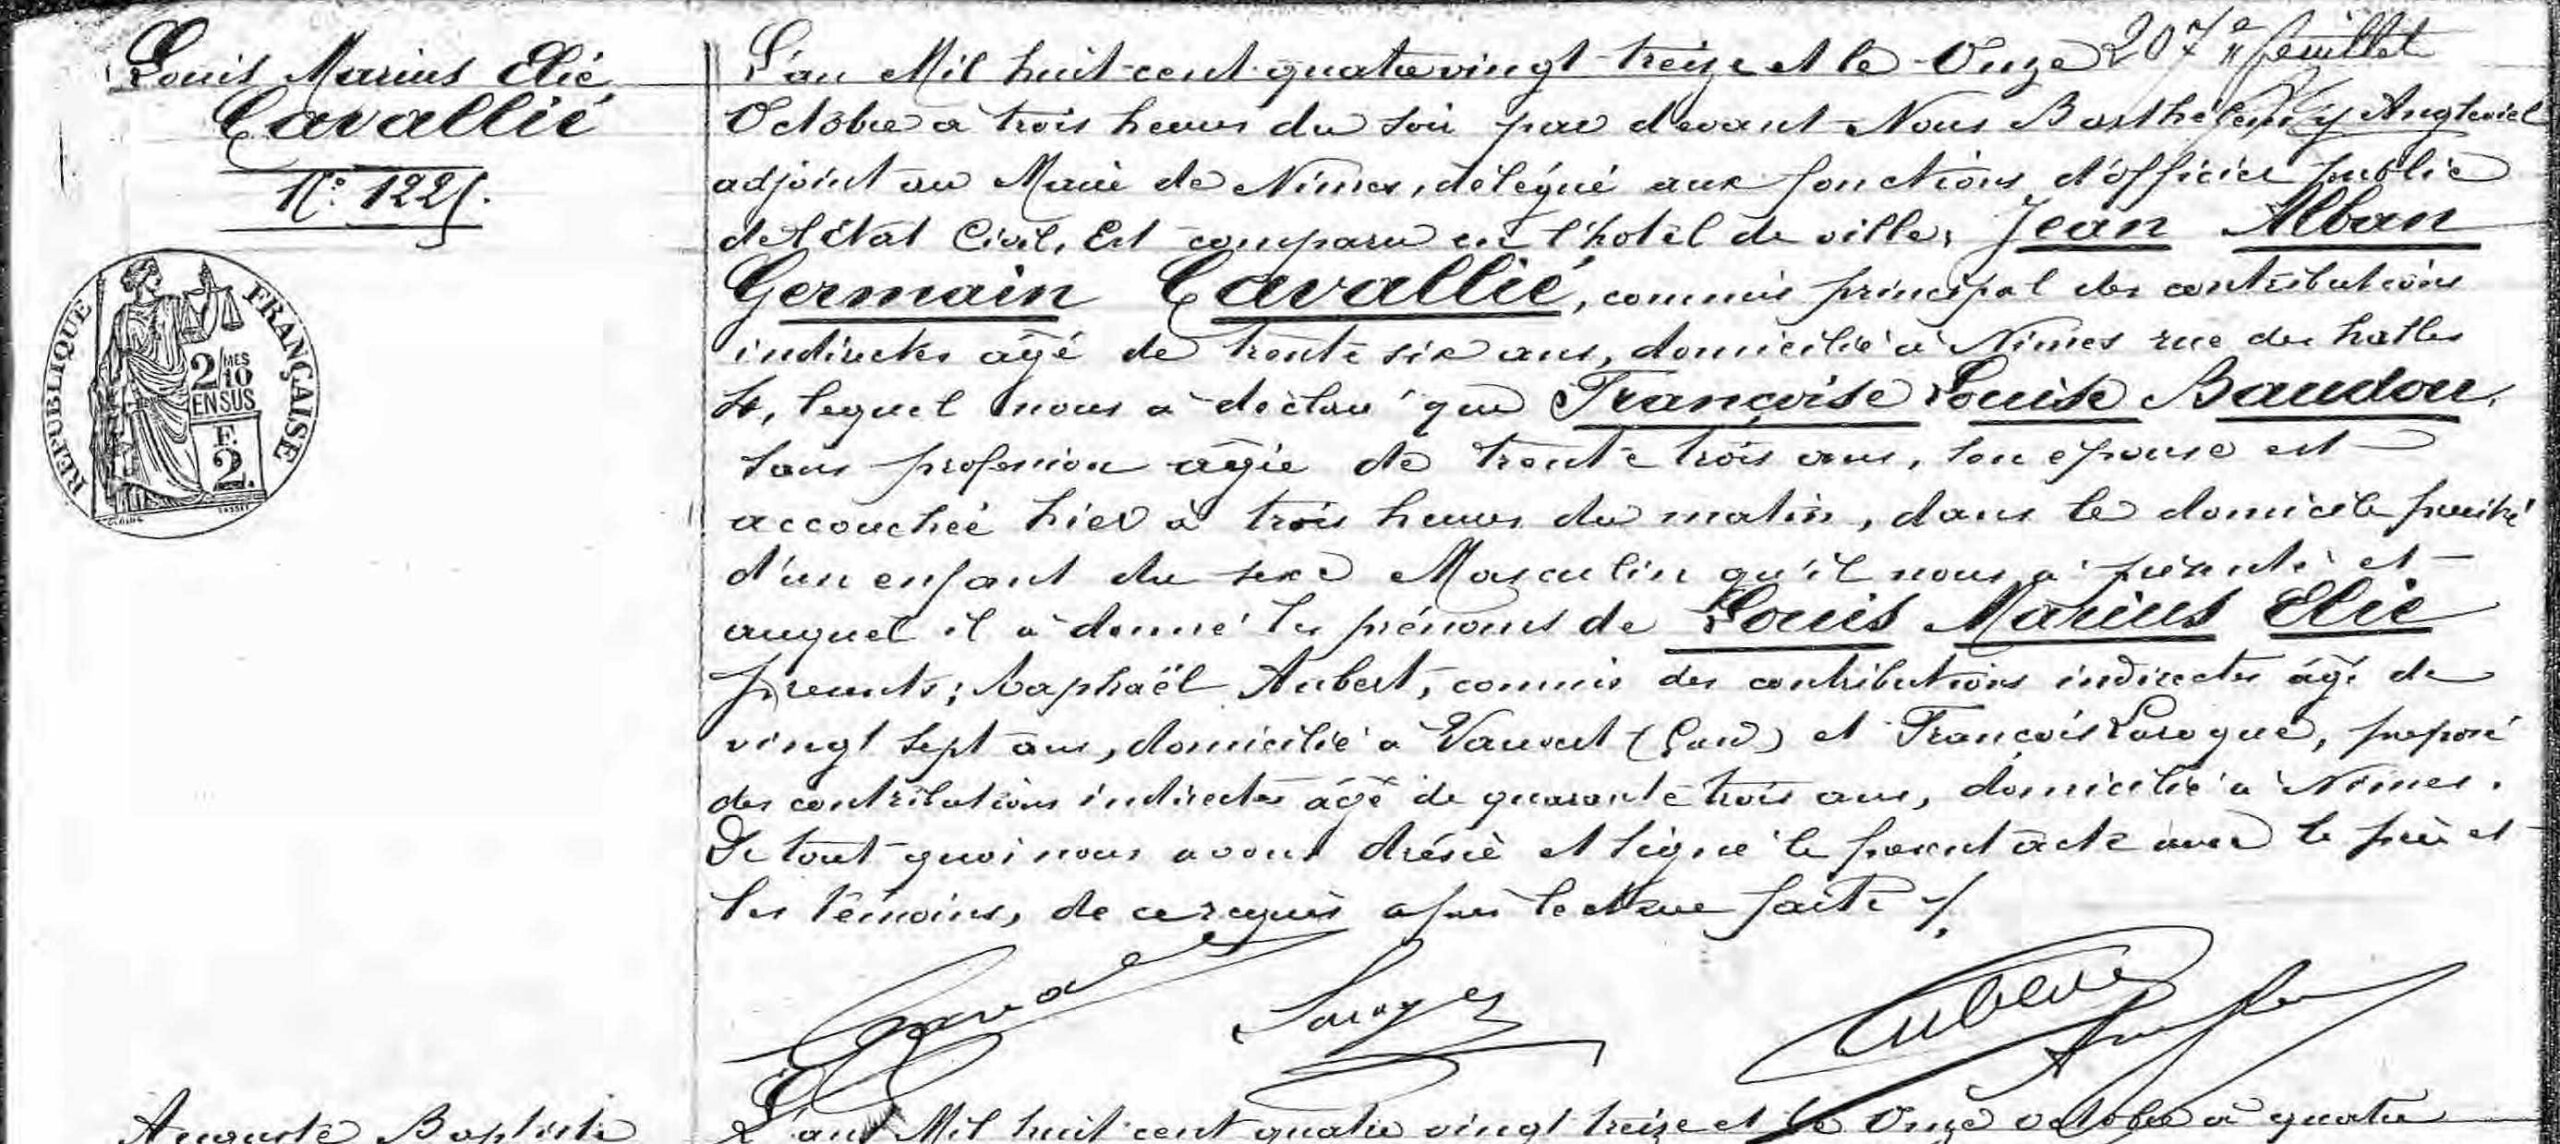 Louis Marius Elié
Cavallié
N.º 1225.
RÉPUBLIQUE FRANÇAISE
2/MES
10
EN SUS
F.
2.
207e feuillet
L'an Mil huit cent quatre vingt treize et le Onze
Octobre à trois heures du soir par devant Nous Barthélemy Angleviel
adjoint au Maire de Nimes, délégué aux fonctions d'officier public
de l'Etat Civil, Est comparu en l'hotel de ville, Jean Alban
Germain Cavallié, commis principal des contributions
indirectes âgé de trente six ans, domicilié à Nimes rue des halles
4, lequel nous a déclaré que Françoise Louise Baudou,
sans profession âgée de trente trois ans, son épouse est
accouchée hier à trois heures du matin, dans le domicile précité
d'un enfant du sexe Masculin qu'il nous a présenté et
auquel il a donné les prénoms de Louis Marius Elie
présents; Raphaël Aubert, commis des contributions indirectes âgé de
vingt sept ans, domicilié à Vauvert (Gard) et François Laroque, préposé
des contributions indirectes âgé de quarante trois ans, domicilié à Nimes.
De tout quoi nous avons dressé et signé le présent acte avec le père et
les témoins, de ce requis après lecture faite ./.
Auguste Baptiste
L'an Mil huit cent quatre vingt treize et le Onze octobre à quatre